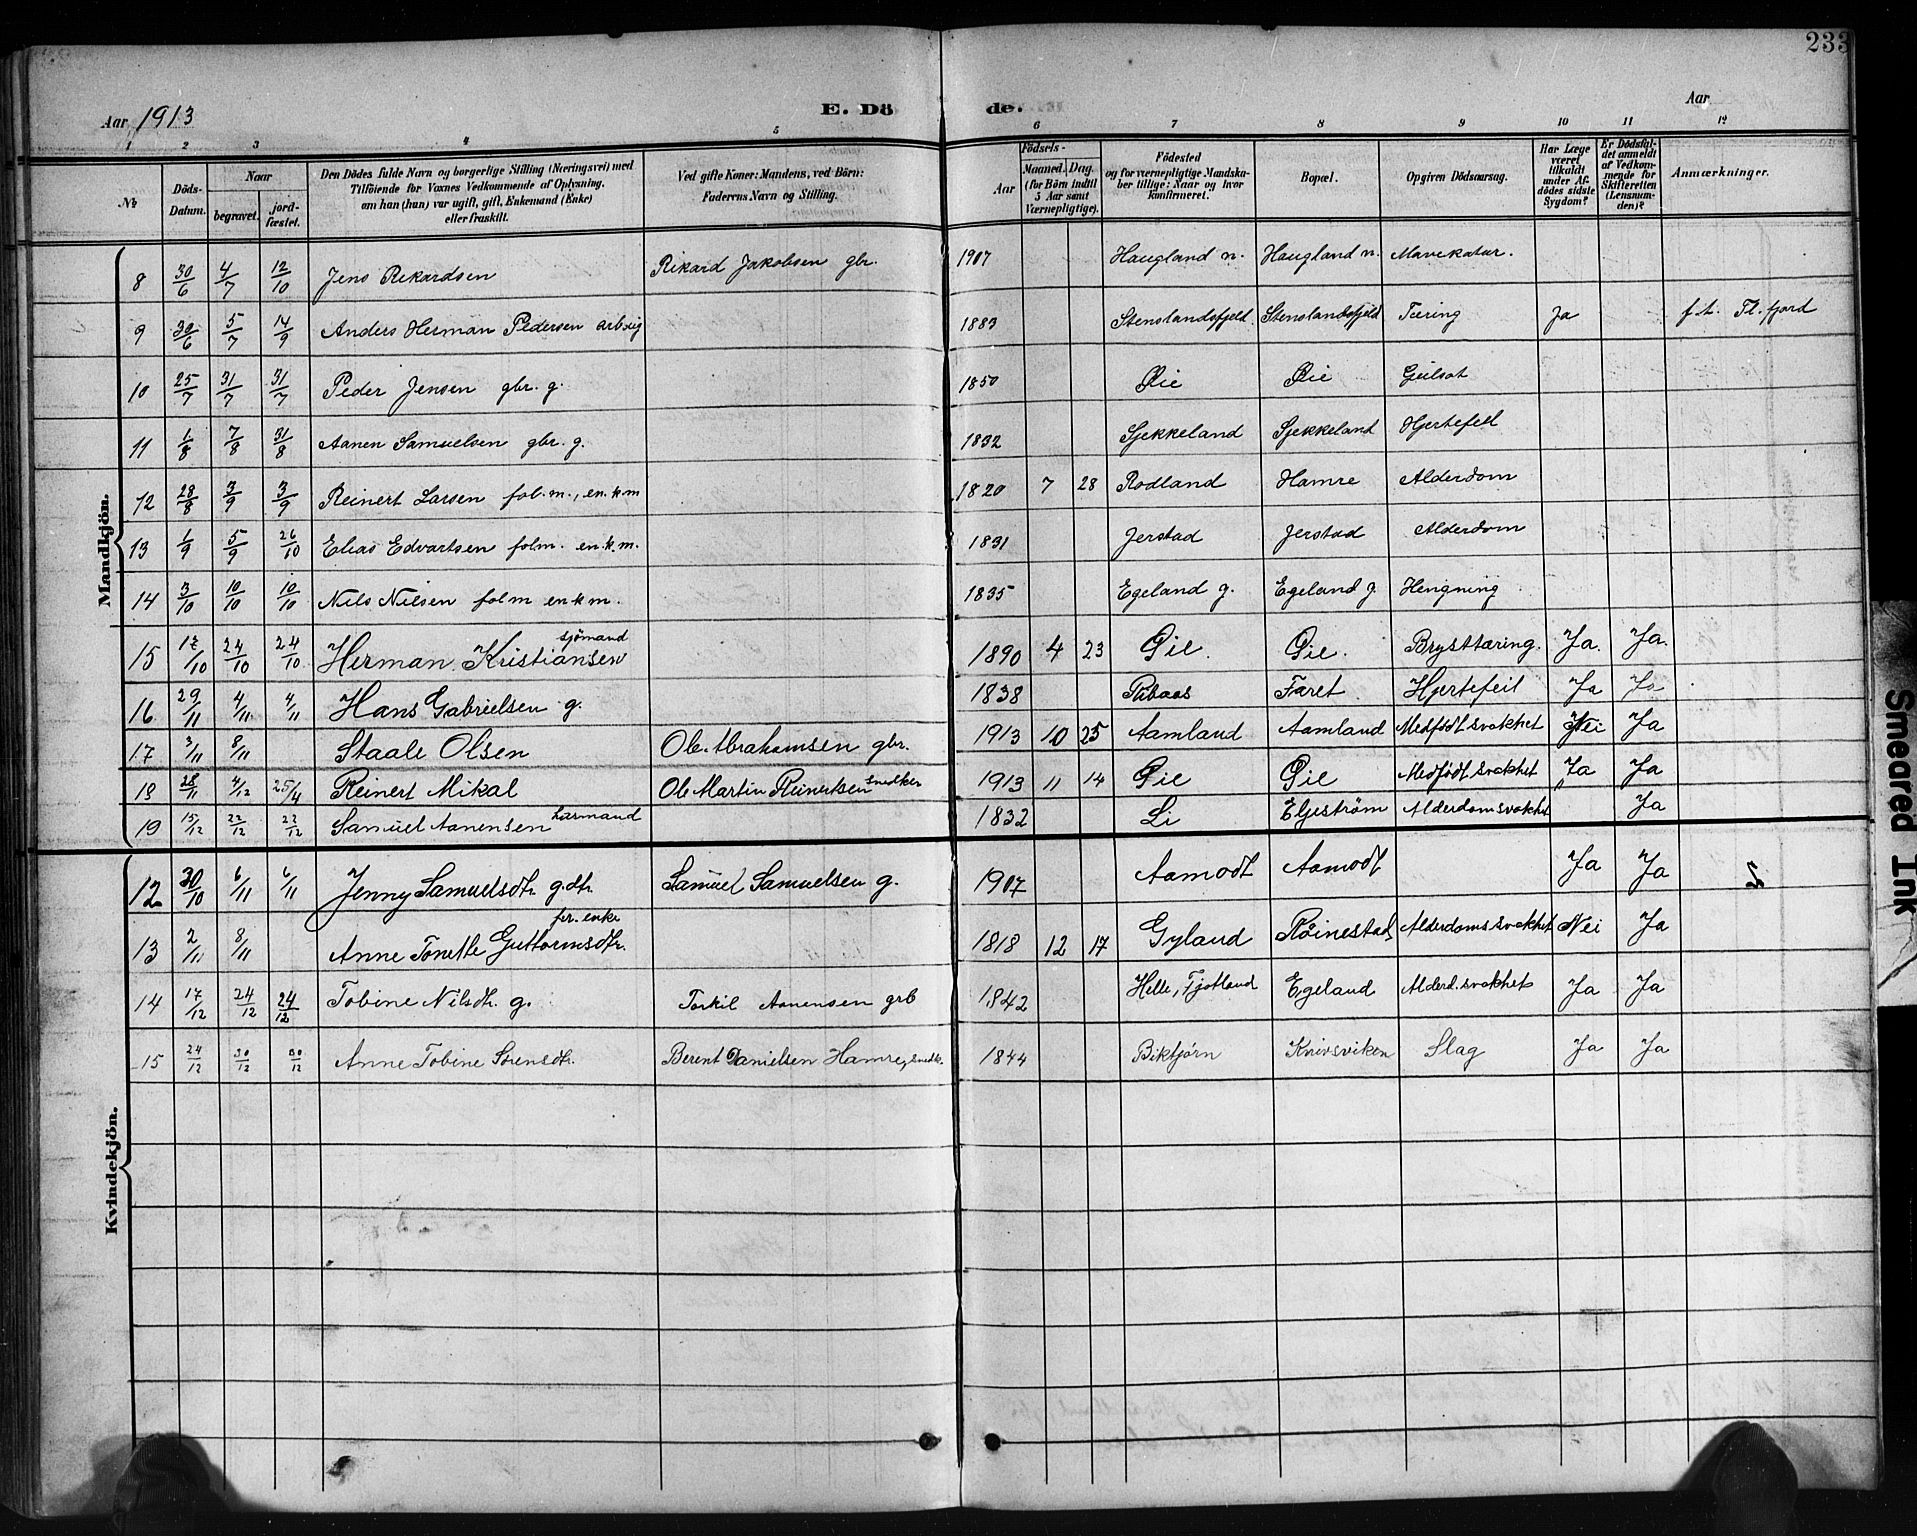 233
Aar 1913
E. Dö de.
Aar
1 2 3 4 5 6 7 8 9 10 11 12
№
Döds-Datum.
Naar
begravet.
jord-fæstet.
Den Dödes fulde Navn og borgerlige Stilling (Næringsvei) med
Tilföiende for Voxnes Vedkommende af Oplysning,
om han (hun) var ugift, gift, Enkemand (Enke)
eller fraskilt.
Ved gifte Koner: Mandens, ved Börn:
Faderens Navn og Stilling.
Aar
Födsels-
Maaned. Dag.
(for Börn indtil
5 Aar samt
Værnepligtige).
Födested
og for værnepligtige Mandska-
ber tillige: Naar og hvor
konfirmeret.
Bopæl.
Opgiven Dödsaarsag.
Har Læge
været
tilkaldt
under Af-
dödes sidste
Sygdom?
Er Dödsfal-
det anmeldt
af Vedkom-
mende for
Skifteretten
(Lensman-
den)?
Anmærkninger.
Mandkjön.
8 30/6 4/7 12/10 Jens Rikardsen Rikard Jakobsen gbr. 1907 Haugland n. Haugland n. Mavekatar.
9 30/6 5/7 14/9 Anders Herman Pedersen arb. ug 1883 Stenslandsfjeld Stenslandsfjeld Tæring Ja f. t. Fl. fjord
10 25/7 31/7 31/7 Peder Jensen gbr. g. 1850 Øie Øie Gulsot
11 1/8 7/8 31/8 Aanen Samuelsen gbr. g. 1832 Sjekkeland Sjekkeland Hjertefeil
12 28/8 3/9 3/9 Reinert Larsen fol.m., en.k.m 1820 7 28 Rodland Hamre Alderdom
13 1/9 5/9 26/10 Elias Edvartsen folm. en.k.m. 1831 Jerstad Jerstad Alderdom
14 3/10 10/10 10/10 Nils Nilsen folm enkm. 1835 Egeland g. Egeland g. Hengning
15 17/10 24/10 24/10 Herman Kristiansen sjömand 1890 4 23 Øie. Øie. Brysttæring. Ja. Ja.
16 29/11 4/11 4/11 Hans Gabrielsen g. 1838 Faret Hjertefeil Ja Ja
17 3/11 8/11 Staale Olsen Ole Abrahamsen gbr. 1913 10 25 Aamland Aamland Medfödt svakhet Nei Ja
18 28/11 4/12 25/4 Reinert Mikal Ole Martin Reinertsen snedker 1913 11 14 Øie Øie Medfödt svakhet Ja Ja
19 15/12 22/12 22/12 Samuel Aanensen kaarmand 1832 Li Eljeström Alderdomsvakhet Ja
Kvindekjön.
12 30/10 6/11 6/11 Jenny Samuelsdtr. g.dtr. Samuel Samuelsen g. 1907 Aamodt Aamodt Ja Ja
13 2/11 8/11 Anne Tonette Guttormsdtr. for. enke 1818 12 17 Gyland Röinestad Alderdomssvakhet Nei Ja
14 17/12 24/12 24/12 Tobine Nilsdtr. g. Torkil Aanensen grb 1842 Helle, Fjotland Egeland Alderd.svakhet Ja Ja
15 24/12 30/12 30/12 Anne Tobine Sörensdtr. Berent Danielsen Hamre, snedk. 1844 Biktjörn Knivsviken Slag Ja Ja
Smeared Ink